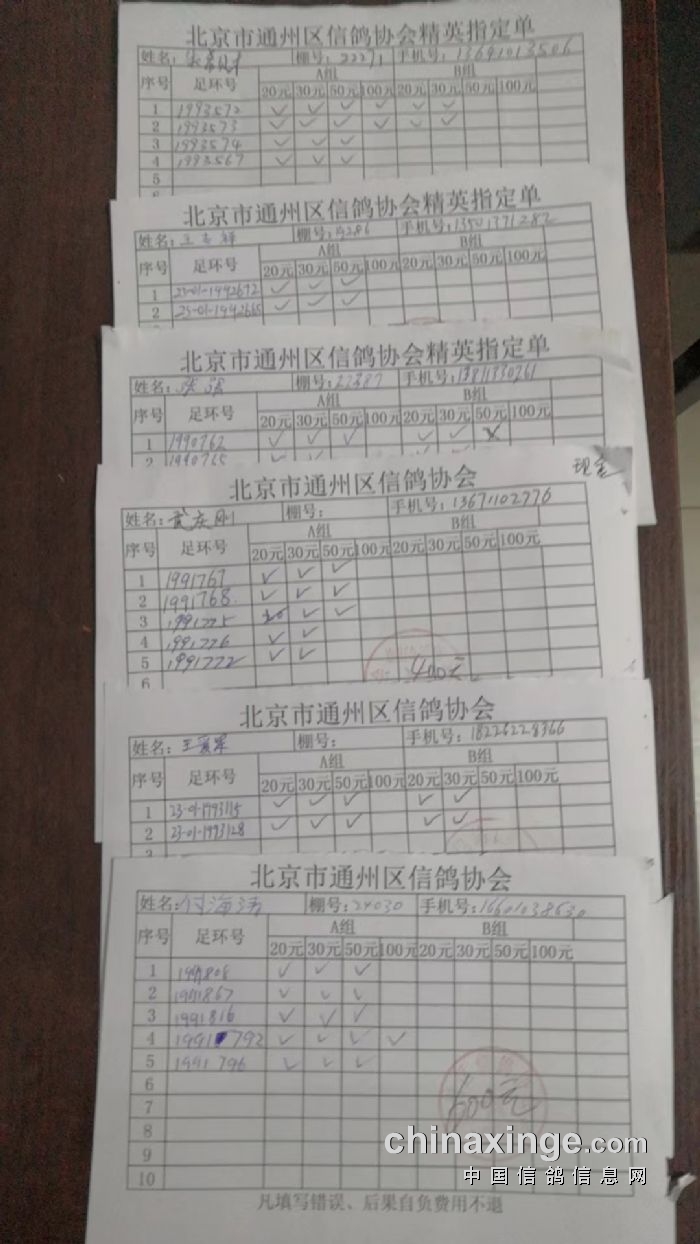 北京市通州区信鸽协会精英指定单
姓名: 棚号:22271 手机号:13691013506
序号 足环号 A组 B组
20元 30元 50元 100元 20元 30元 50元 100元
1 1993572 ✓ ✓ ✓ ✓ ✓ ✓
2 1993573 ✓ ✓ ✓ ✓ ✓ ✓
3 1993574 ✓ ✓ ✓
4 1993567 ✓ ✓ ✓
5
北京市通州区信鸽协会精英指定单
姓名: 棚号: 手机号:13501371282
序号 足环号 A组 B组
20元 30元 50元 100元 20元 30元 50元 100元
1 23-01-1992672 ✓ ✓ ✓
2 23-01-1992665 ✓ ✓ ✓
北京市通州区信鸽协会精英指定单
姓名: 棚号:27387 手机号:13811330261
序号 足环号 A组 B组
20元 30元 50元 100元 20元 30元 50元 100元
1 1990762 ✓ ✓ ✓ ✓ ✓
2 1990765
现金
北京市通州区信鸽协会
姓名:武庆刚 棚号: 手机号:13671102776
序号 足环号 A组 B组
20元 30元 50元 100元 20元 30元 50元 100元
1 1991767 ✓ ✓ ✓
2 1991768 ✓ ✓ ✓
3 1991775 ✓ ✓
4 1991776 ✓ ✓
5 1991772 ✓ ✓
6 400元
北京市通州区信鸽协会
姓名: 棚号: 手机号:18226228366
序号 足环号 A组 B组
20元 30元 50元 100元 20元 30元 50元 100元
1 23-01-1993115 ✓ ✓ ✓ ✓ ✓
2 23-01-1993128 ✓ ✓ ✓ ✓ ✓
北京市通州区信鸽协会
姓名:付海涛 棚号:24030 手机号:16601038630
序号 足环号 A组 B组
20元 30元 50元 100元 20元 30元 50元 100元
1 1991808 ✓ ✓ ✓
2 1991867 ✓ ✓ ✓
3 1991816 ✓ ✓ ✓
4 1991792 ✓ ✓ ✓ ✓
5 1991796 ✓ ✓ ✓
6
7 600元
8
9
10
凡填写错误、后果自负费用不退
chinaxinge.com
中国信鸽信息网